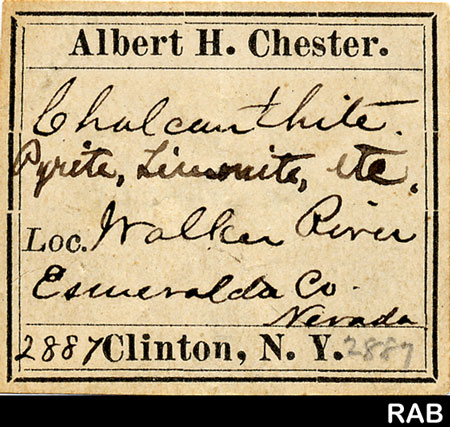 Albert H. Chester.
Chalcanthite.
Pyrite, Limonite, etc.
Loc. Walker River
Esmeralda Co.
Nevada
2887 Clinton, N. Y. 2887
RAB